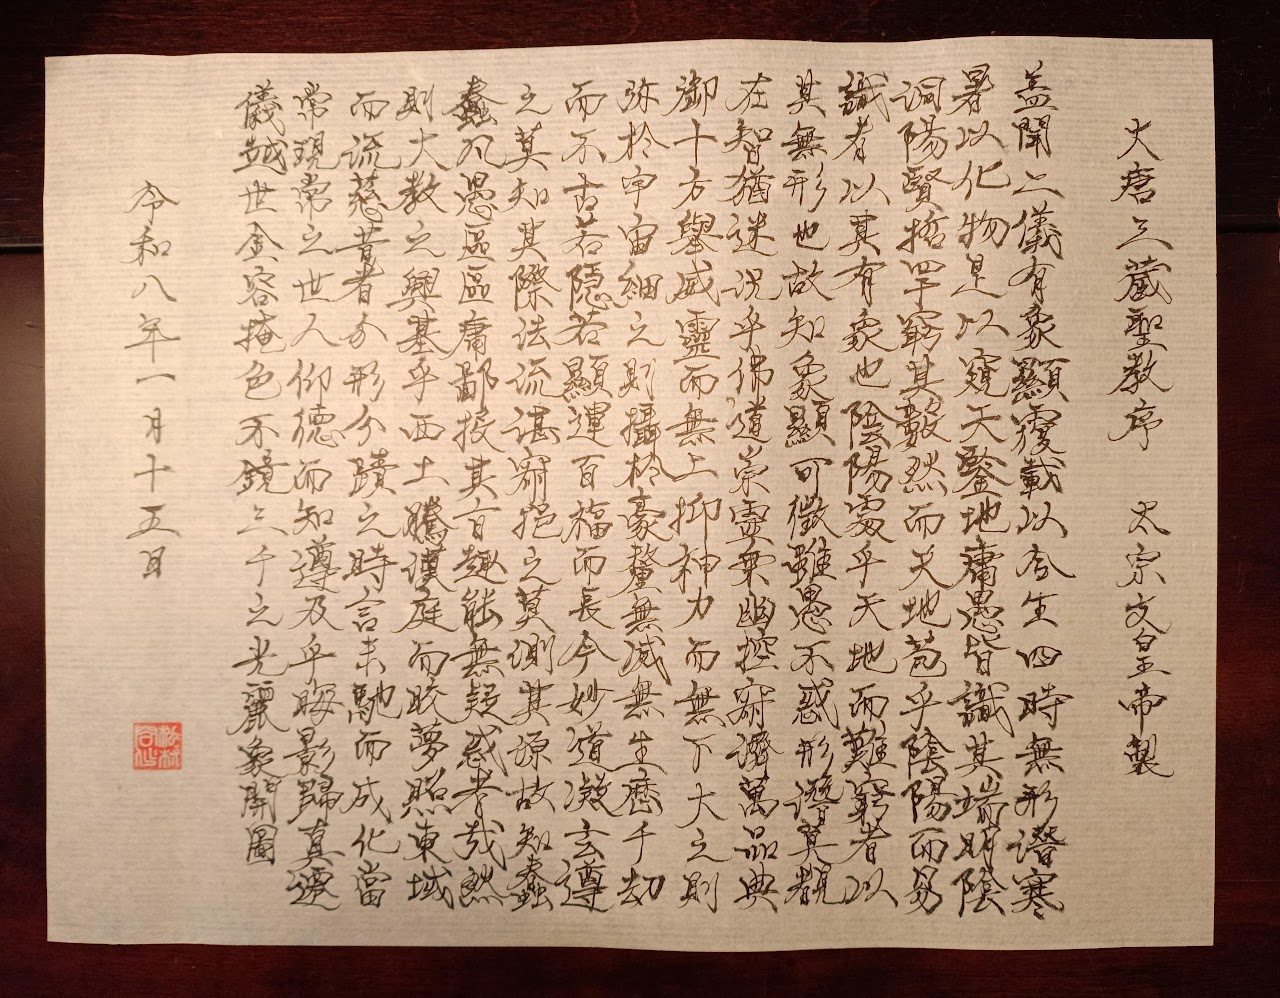 大唐三蔵聖教序　太宗文皇帝製
蓋聞二儀有象顯覆載以含生四時無形潛寒
暑以化物是以窺天鑒地庸愚皆識其端明陰
洞陽賢哲罕窮其數然而天地苞乎陰陽而易
識者以其有象也陰陽處乎天地而難窮者以
其無形也故知象顯可徵雖愚不惑形潛莫覩
在智猶迷況乎佛道崇虛乗幽控寂濟萬品典
御十方舉威靈而無上抑神力而無下大之則
弥於宇宙細之則攝於豪釐無滅無生歷千劫
而不古若隱若顯運百福而長今妙道凝玄遵
之莫知其際法流湛寂挹之莫測其源故知蠢
蠢凡愚區區庸鄙投其旨趣能無疑惑者哉然
則大教之興基乎西土騰漢庭而皎夢照東域
而流慈昔者分形分蹟之時言未馳而成化當
常現常之世人仰德而知遵及乎晦影歸真遷
儀越世金容掩色不鏡三千之光麗象開圖
令和八年一月十五日